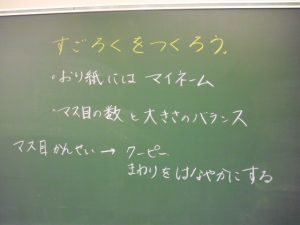 すごろくをつくろう。
・おり紙にはマイネーム
・マス目の数と大きさのバランス
マス目かんせい→クーピー
まわりをはなやかにする